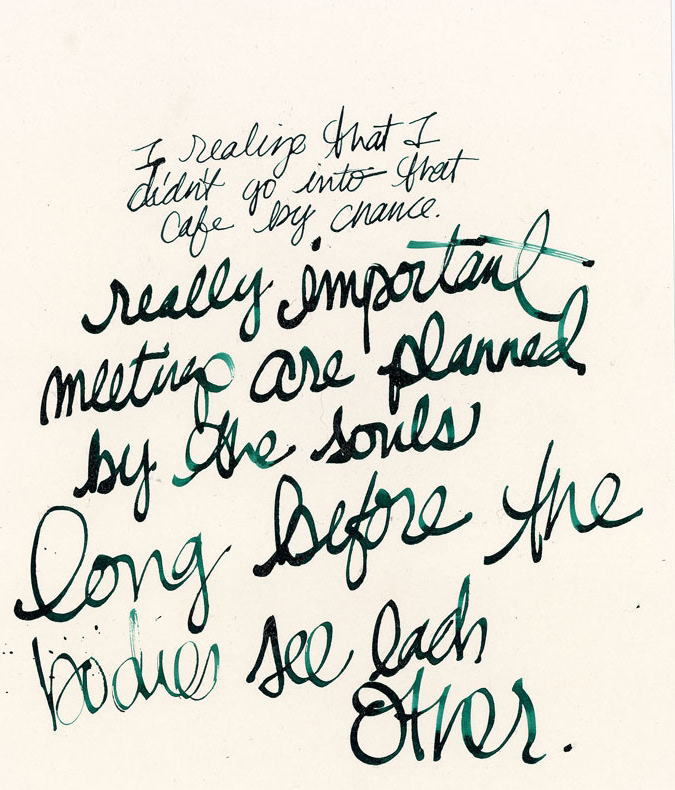 I realize that I
didn't go into that
cafe by chance.
really important
meetings are planned
by the souls
long before the
bodies see each
other.